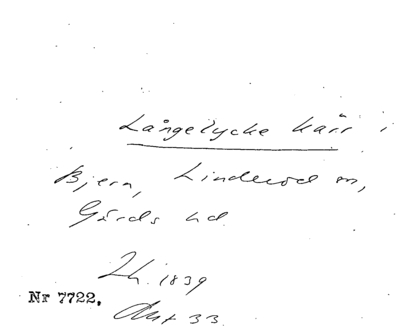 Långelycke kärr i
Bjern, Linderöd sn,
Gärds hd
Lh. 1839
Nr 7722.
Akt 33